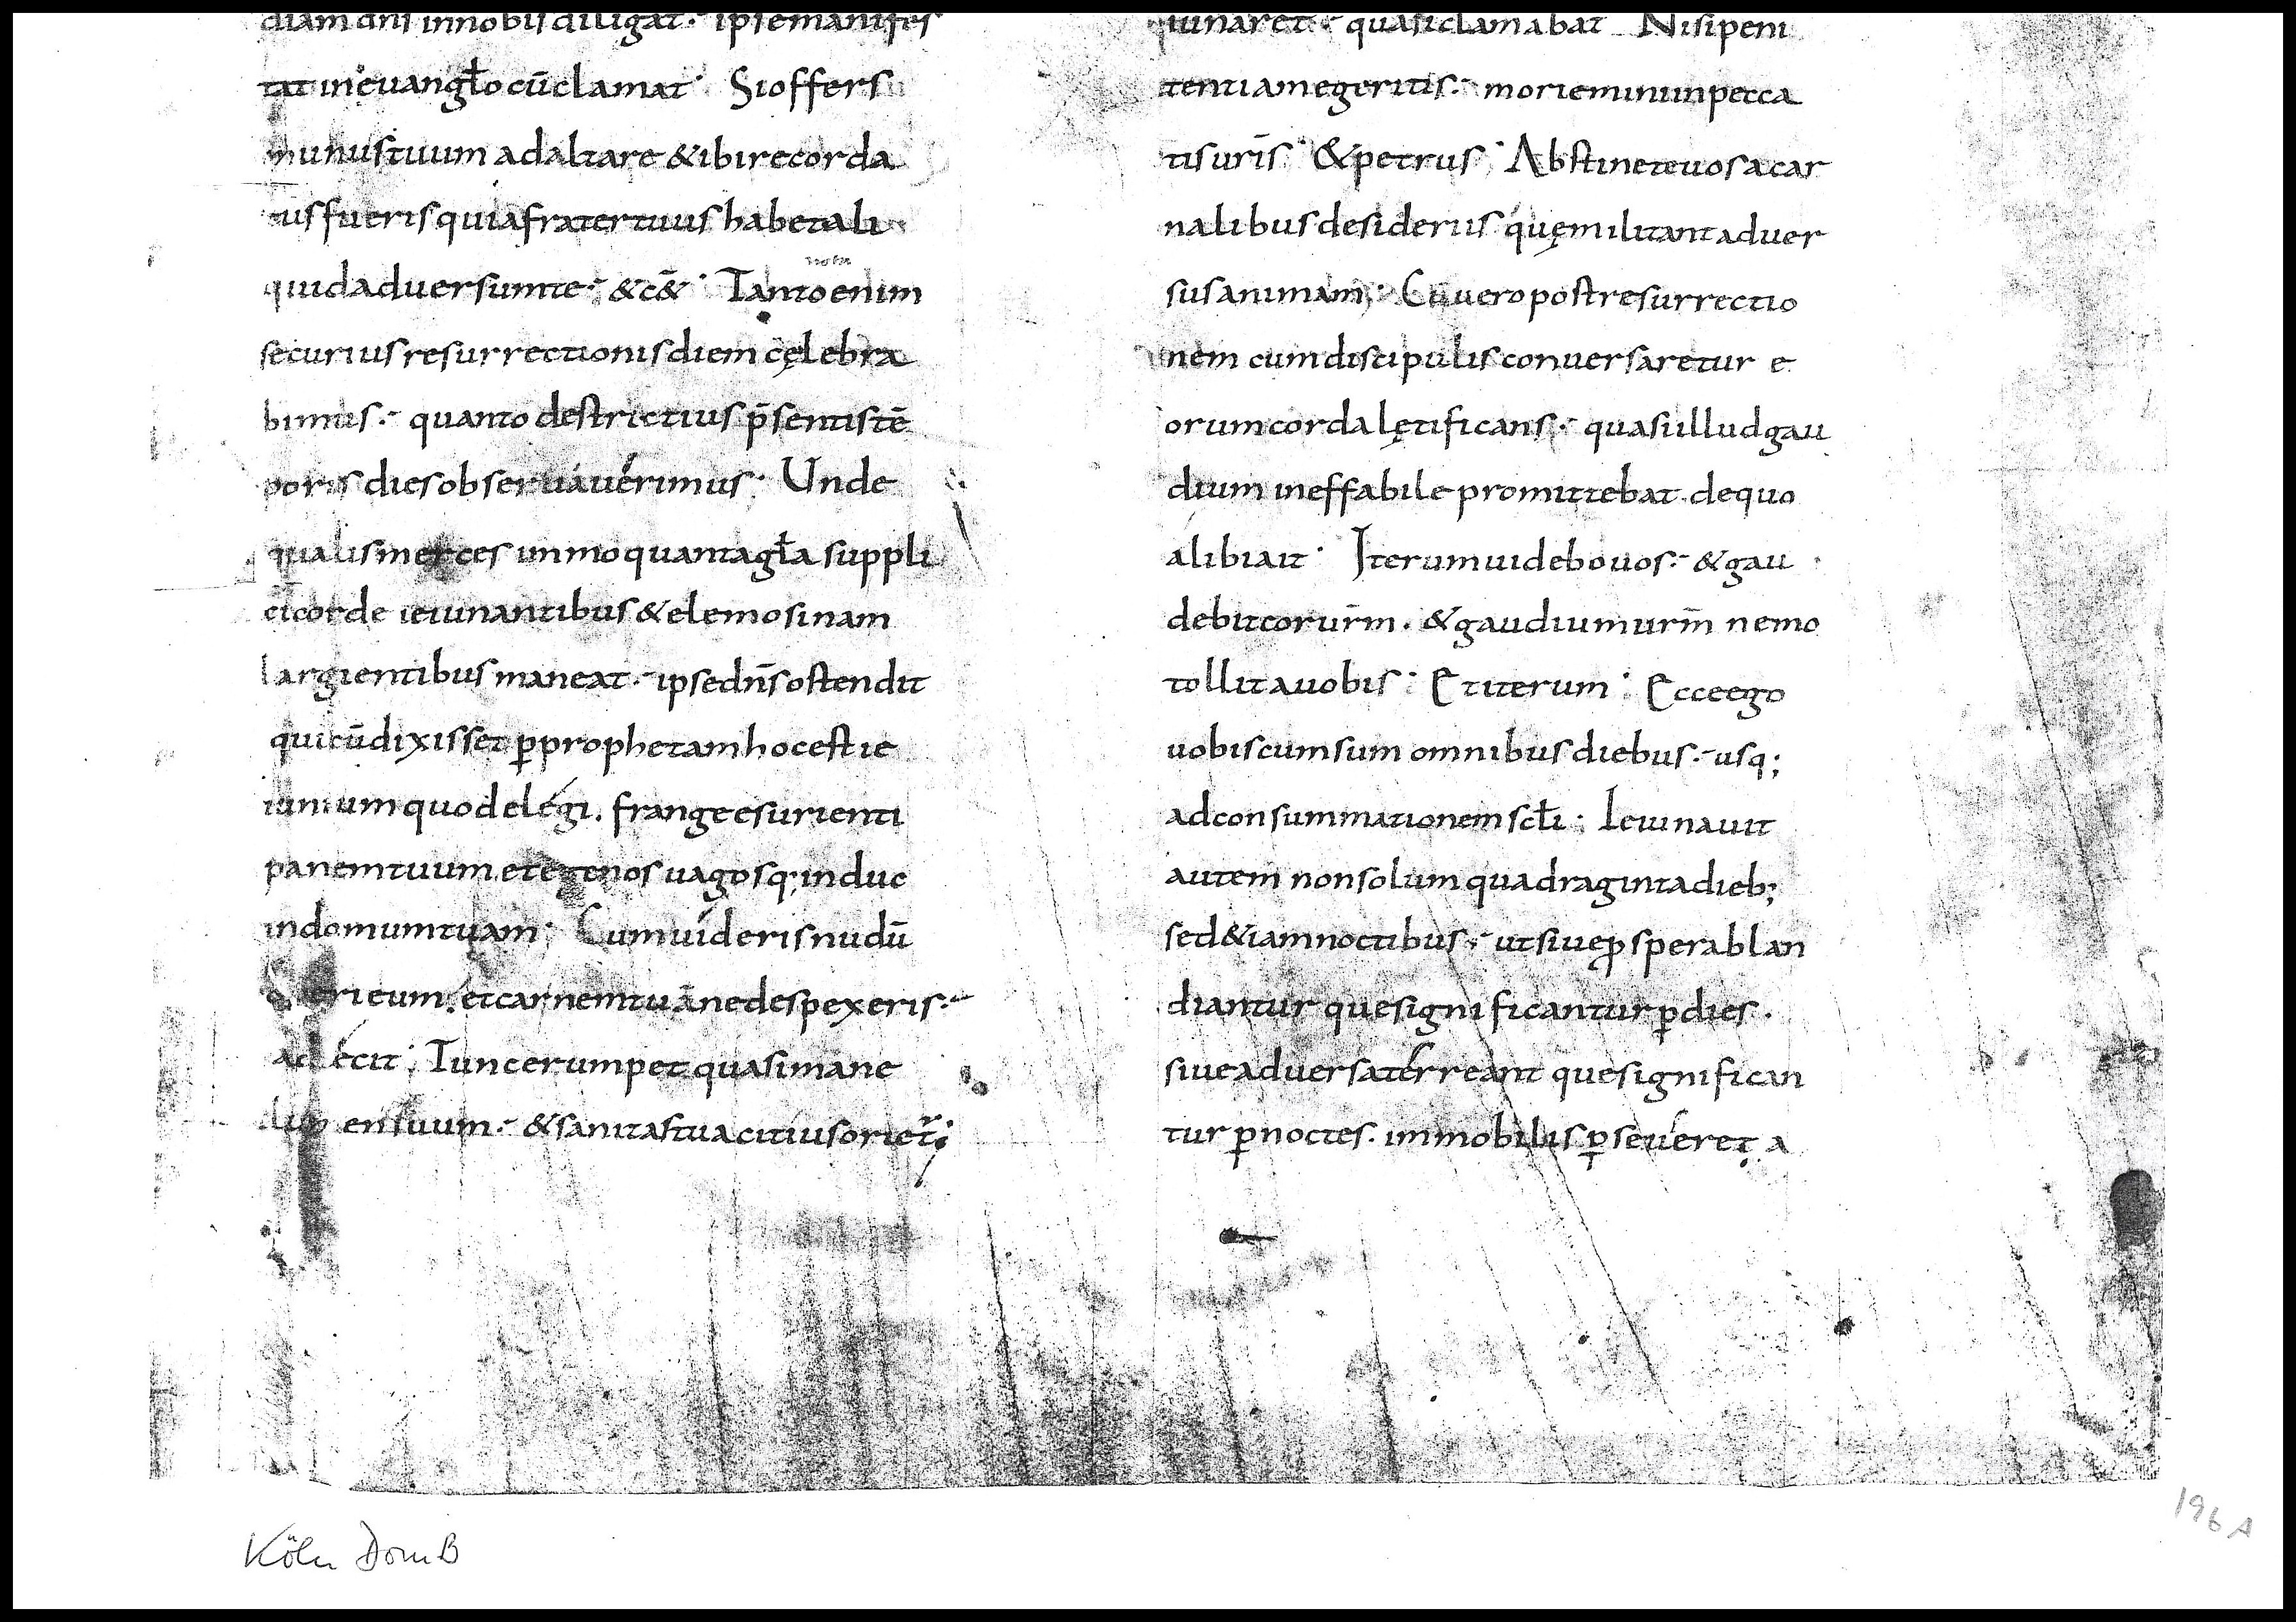 diam dni in nobis diligat ipse manifes
tat in euangło cū clamat Si offers
munus tuum ad altare & ibi recorda
tus fueris quia frater tuus habet ali
quid aduersum te & c& Tanto enim
securius resurrectionis diem cęlebra
bimus quanto destrictius p̄sentis tē
poris dies obseruauerimus Unde
qualis merces immo quanta gła suppli
ci corde ieiunantibus & elemosinam
largientibus maneat ipse dn̄s ostendit
qui cū dixisset ꝑ prophetam hoc est ie
iunium quod elégi . frange esurienti
panem tuum et egenos uagosq; induc
in domum tuam Cum uíderis nudū
eum et carnem tuā ne despexeris
adiécit Tunc erumpet quasi mane
lumen suum & sanitas tua citius oriet̄
iunaret quasi clamabat Nisi peni
tentiam egeritis moriemini in pecca
tis ur̄is & petrus Abstinete uos a car
nalibus desideriis quę militant aduer
sus animam Cū uero post resurrectio
nem cum discipulis conuersaretur e
orum corda lętificans quasi illud gau
dium ineffabile promittebat de quo
alibi ait Iterum uidebo uos & gau
debit cor ur̄m . & gaudium ur̄m nemo
tollit a uobis Et iterum Ecce ego
uobiscum sum omnibus diebus usq;
ad consummationem scłi Ieiunauit
autem non solum quadraginta dieb;
sed & iam noctibus ut siue ꝓspera blan
diantur que significantur ꝑ dies .
siue aduersa terreant que significan
tur ꝑ noctes . immobilis ꝑseueret a
Köln Dom B
196 A